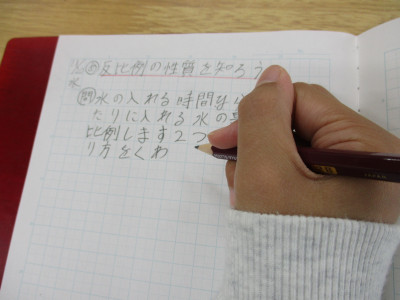 反比例の性質を知ろう
水
問 水の入れる時間は
たりに入れる水の
比例します2つ
り方をくわ